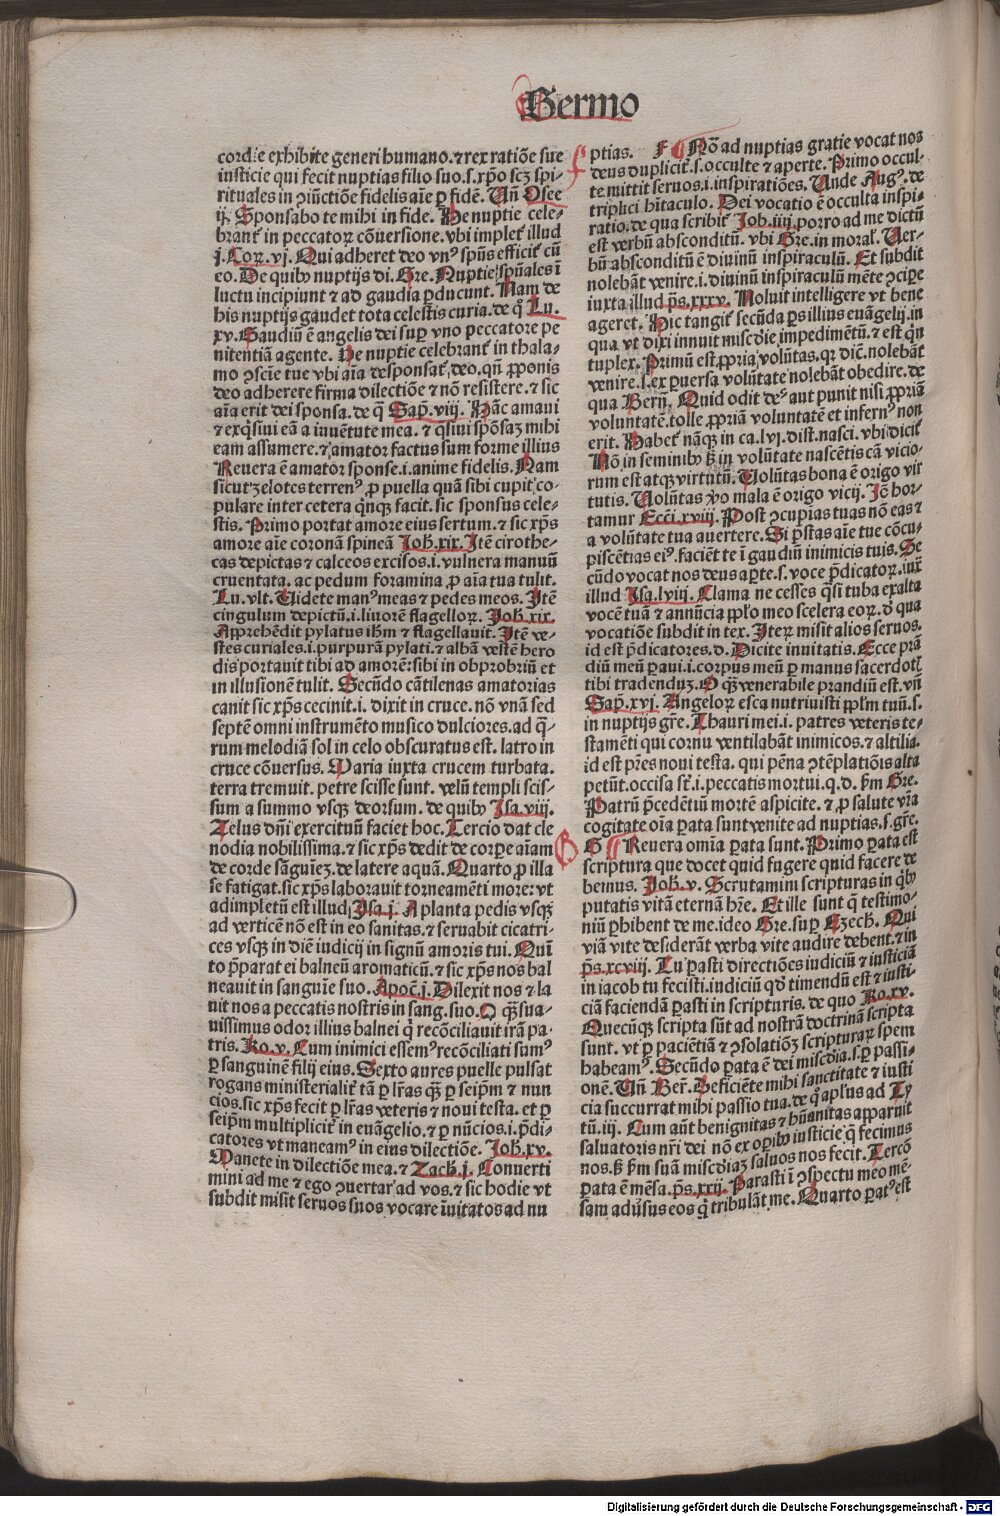 Sermo
cordie exhibite generi humano. ⁊ rex ratiõe sue
iusticie qui fecit nuptias filio suo. s. xp̃o scz spi⸗
rituales in ꝯiũctiõe fidelis aĩe ꝑ fidẽ. Uñ Osee
ij. Sponsabo te mihi in fide. He nuptie cele⸗
brant̃ in peccatoꝝ cõuersione. vbi implet̃ illud
j. Coꝝ. vj. Qui adheret deo vnꝰ spũs efficit̃ cũ
eo. De quibꝰ nuptijs di. Gre. Nuptie spũales ĩ
luctu incipiunt ⁊ ad gaudia ꝑducunt. Nam de
his nuptijs gaudet tota celestis curia. de q̊ Lu.
xv. Gaudiũ ẽ angelis dei suꝑ vno peccatore pe
nitentiã agente. He nuptie celebrant̃ in thala⸗
mo ꝯscĩe tue vbi aĩa desponsat̃ deo. qñ ꝓponis
deo adherere firma dilectiõe ⁊ nõ resistere. ⁊ sic
aĩa erit dei sponsa. de q̊ Sap̃. viij. Hãc amaui
⁊ exq̃siui eã a iuuẽtute mea. ⁊ q̃siui spõsaz mihi
eam assumere. ⁊ amator factus sum forme illius
Reuera ẽ amator sponse. i. anime fidelis. Nam
sicut zelotes terrenꝰ ꝓ puella quã sibi cupit co⸗
pulare inter cetera q̃nqꝫ facit. sic sponsus cele⸗
stis. Primo portat amore eius sertum. ⁊ sic xp̃s
amore aĩe coronã spineã Joh̃. xix. Itẽ cirothe⸗
cas depictas ⁊ calceos excisos. i. vulnera manuũ
cruentata. ac pedum foramina ꝓ aĩa tua tulit.
Lu. vlt. Uidete manꝰ meas ⁊ pedes meos. Itẽ
cingulum depictũ. i. liuorẽ flagelloꝝ. Joh̃. xix.
Apprehẽdit pylatus ih̃m ⁊ flagellauit. Itẽ ve⸗
stes curiales. i. purpurã pylati. ⁊ albã vestẽ hero
dis portauit tibi ad amorẽ: sibi in obprobriũ et
in illusionẽ tulit. Secũdo cãtilenas amatorias
canit sic xp̃s cecinit. i. dixit in cruce. nõ vnã sed
septẽ omni instrumẽto musico dulciores. ad q̃⸗
rum melodiã sol in celo obscuratus est. latro in
cruce cõuersus. Maria iuxta crucem turbata.
terra tremuit. petre scisse sunt. velũ templi scis⸗
sum a summo vsqꝫ deorsum. de quibꝰ Isa. viij.
Zelus dñi exercituũ faciet hoc. Tercio dat cle
nodia nobilissima. ⁊ sic xp̃s dedit de corꝑe aĩam
de corde sãguiez. de latere aquã. Quarto ꝓ illa
se fatigat. sic xp̃s laborauit torneamẽti more: vt
adimpletũ est illud Isa. j. A planta pedis vsqꝫ
ad verticẽ nõ est in eo sanitas. ⁊ seruabit cicatri⸗
ces vsqꝫ in diẽ iudicij in signũ amoris tui. Quĩ
to p̃parat ei balneũ aromaticũ. ⁊ sic xp̃s nos bal
neauit in sanguĩe suo. Apoc̃. j. Dilexit nos ⁊ la
uit nos a peccatis nostris in sang. suo. O q̃ꝫ sua⸗
uissimus odor illius balnei q̊ recõciliauit irã pa⸗
tris. Ro. v. Cum inimici essemꝰ recõciliati sumꝰ
ꝑ sanguinẽ filij eius. Sexto aures puelle pulsat
rogans ministerialit̃ tã ꝑ lr̃as q̃ꝫ ꝑ seip̃m ⁊ nun
cios. sic xp̃s fecit ꝑ lr̃as veteris ⁊ noui testa. et ꝑ
seip̃m multiplicit̃ in euãgelio. ⁊ ꝑ nũcios. i. p̃di⸗
catores vt maneamꝰ in eius dilectiõe. Joh̃. xv.
Manete in dilectiõe mea. ⁊ Zach̃. j. Conuerti
mini ad me ⁊ ego ꝯuertar ad vos. ⁊ sic hodie vt
subdit misit seruos suos vocare ĩuitatos ad nu
ptias. F Nõ ad nuptias gratie vocat nos
deus duplicit̃. s. occulte ⁊ aperte. Primo occul⸗
te mittit seruos. i. inspiratiões. Unde Augꝰ. de
triplici hitaculo. Dei vocatio ẽ occulta inspi⸗
ratio. de qua scribit̃ Job. iiij. porro ad me dictũ
est verbũ absconditũ. vbi Gre. in moral̃. Uer⸗
bũ absconditũ ẽ diuinũ inspiraculũ. Et subdit
nolebãt venire. i. diuinũ inspiraculũ mẽte ꝯciꝑe
iuxta illud p̃s. xxxv. Noluit intelligere vt bene
ageret. Hic tangit̃ secũda ꝑs illius euãgelij. in
qua vt dixi innuit miscd̃ie impedimẽtũ. ⁊ est q̃n
tuplex. Primũ est ꝓpria volũtas. qꝛ dic̃. nolebãt
venire. s. ex ꝑuersa volũtate nolebãt obedire. de
qua Berñ. Quid odit deꝰ aut punit nisi ꝓpriã
voluntatẽ. tolle ꝓpriã voluntatẽ et infernꝰ non
erit. Habet̃ nãqꝫ in ca. lvj. dist. nasci. vbi dicit̃
Nõ in seminibꝰ sꝫ in volũtate nascẽtis cã vicio⸗
rum est atqꝫ virtutũ. Uolũtas bona ẽ origo vir
tutis. Uolũtas ꝟo mala ẽ origo vicij. Iõ hor⸗
tamur Ecc̃i. xviij. Post ꝯcupias tuas nõ eas ⁊
a volũtate tua auertere. Si p̃stas aĩe tue cõcu⸗
piscẽtias eiꝰ. faciẽt te ĩ gaudiũ inimicis tuis. Se
cũdo vocat nos deus aꝑte. s. voce p̃dicatoꝝ. iux
illud Isa. lviij. Clama ne cesses q̃si tuba exalta
vocẽ tuã ⁊ annũcia pp̃lo meo scelera eoꝝ. de qua
vocatiõe subdit in tex. Iteꝝ misit alios seruos.
id est p̃dicatores. d. Dicite inuitatis. Ecce prã
diũ meũ ꝑaui. i. corpus meũ ꝑ manus sacerdotũ
tibi tradenduz. O q̃ꝫ venerabile prandiũ est. vñ
Sap̃. xvj. Angeloꝝ esca nutriuisti pp̃lm tuũ. s.
in nuptijs gr̃e. Thauri mei. i. patres veteris te⸗
stamẽti qui cornu ventilabãt inimicos. ⁊ altilia.
id est pr̃es noui testa. qui pẽna ꝯtẽplatiõis alta
petũt. occisa st̃. i. peccatis mortui. q. d. ẜm Gre.
Patrũ p̃cedẽtiũ mortẽ aspicite. ⁊ ꝓ salute vr̃a
cogitate oĩa ꝑata sunt venite ad nuptias. s. gr̃e.
G Reuera omĩa ꝑata sunt. Primo ꝑata est
scriptura que docet quid fugere quid facere de
bemus. Joh̃. v. Scrutamini scripturas in q̃bꝰ
putatis vitã eternã hr̃e. Et ille sunt q̃ testimo⸗
niũ ꝑhibent de me. ideo Gre. suꝑ Ezech. Qui
viã vite desiderãt verba vite audire debent. ⁊ in
p̃s. xcviij. Tu ꝑasti directiões iudiciũ ⁊ iusticiã
in iacob tu fecisti. iudiciũ qd̃ timendũ est ⁊ iusti
ciã faciendã ꝑasti in scripturis. de quo Ro. xv.
Quecũqꝫ scripta sũt ad nostrã doctrinã scripta
sunt. vt ꝑ paciẽtiã ⁊ ꝯsolatiõꝫ scripturaꝝ spem
habeamꝰ. Secũdo ꝑata ẽ dei miscd̃ia. s. ꝑ passi⸗
onẽ. Uñ Ber̃. Deficiẽte mihi sanctitate ⁊ iusti
cia succurrat mihi passio tua. de q̊ ap̃lus ad Ty
tũ. iij. Cum aũt benignitas ⁊ hũanitas apparuit
saluatoris nr̃i dei nõ ex oꝑibꝰ iusticie q̃ fecimus
nos. sꝫ ẜm suã miscd̃iaz saluos nos fecit. Tercõ
ꝑata ẽ mẽsa. p̃s. xxij. Parasti ĩ ꝯspectu meo mẽ⸗
sam adũsus eos q̃ tribulãt me. Quarto ꝑatꝰ est
Digitalisierung gefördert durch die Deutsche Forschungsgemeinschaft - DFG